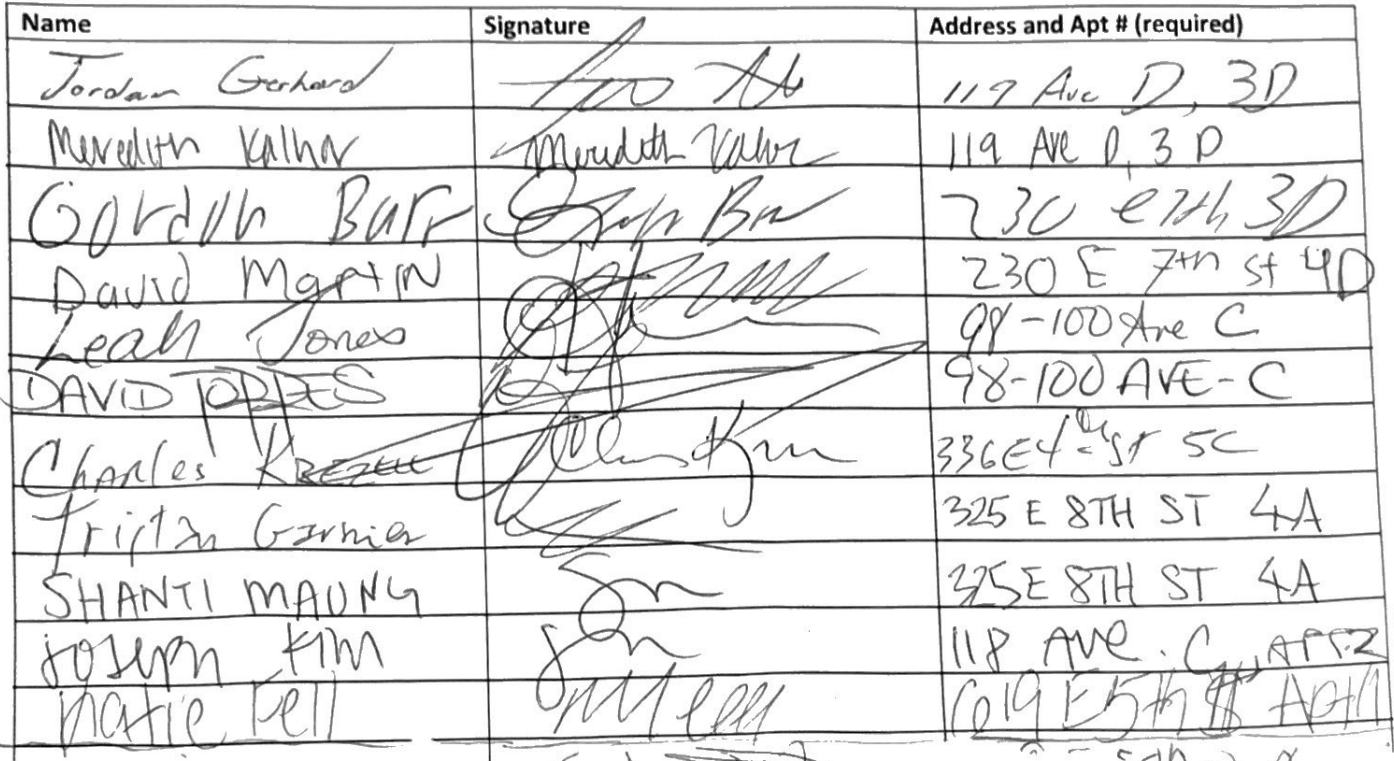 Name Signature Address and Apt # (required)
Jordan Gerhard 119 Ave D, 3D
Meredith Kalhor Meredith Kalhor 119 Ave D, 3D
Gordon Barr 230 E 7th 3D
David Martin 230 E 7th St 4D
Leah Jones 98-100 Ave C
DAVID TORRES 98-100 AVE-C
Charles KREZELL 336 E 4th St 5C
Tristan Garnier 325 E 8TH ST 4A
SHANTI MAUNG 325 E 8TH ST 4A
Joseph Kim 118 AVE. C, APT. 2
Katie Fell 619 E 5th St Apt